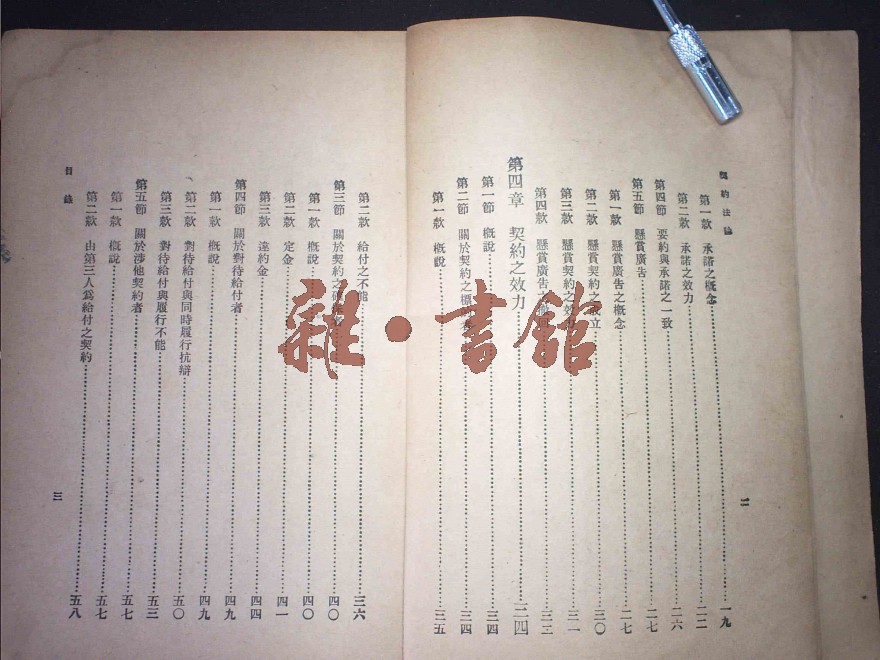 契約法論
第一款 承諾之概念……一九
第二款 承諾之效力……二二
第四節 要約與承諾之一致……二六
第五節 懸賞廣告……二七
第一款 懸賞廣告之概念……二七
第二款 懸賞契約之成立……三〇
第三款 懸賞契約之效力……三一
第四款 懸賞廣告之……三三
第四章 契約之效力……三四
第一節 概說……三四
第二節 關於契約之標……三四
第一款 概說……三五
二
第二款 給付之不能……三六
第三節 關於契約之確……四〇
第一款 概說……四〇
第二款 定金……四一
第三款 違約金……四四
第四節 關於對待給付者……四九
第一款 概說……四九
第二款 對待給付與同時履行抗辯……五〇
第三款 對待給付與履行不能……五三
第五節 關於涉他契約者……五七
第一款 概說……五七
第二款 由第三人爲給付之契約……五八
目錄
三
雜·書館